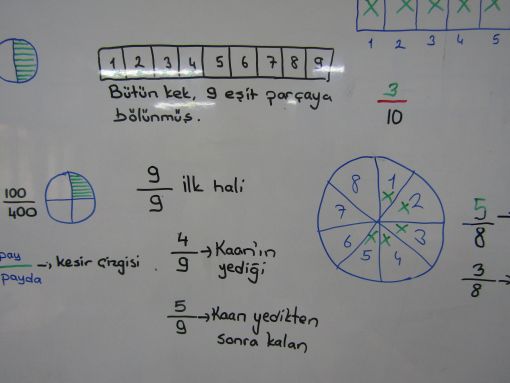 1 2 3 4 5
1 2 3 4 5 6 7 8 9
Bütün kek, 9 eşit parçaya
bölünmüş.
3
10
100
400
9
9
ilk hali
8 1
7 2
6 3
5 4
5
8
3
8
pay
payda
kesir çizgisi
4
9
Kaan'ın
yediği
5
9
Kaan yedikten
sonra kalan